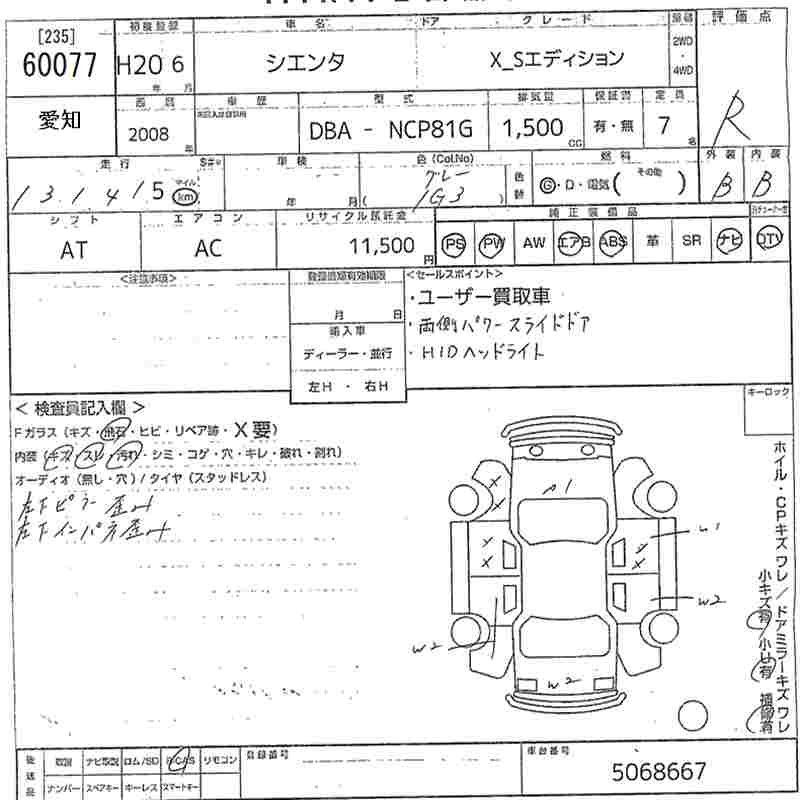 [235]
60077
初度登録
H20 6
年 月
車名
シエンタ
ドア
グレード
X_Sエディション
2WD
・
4WD
評価点
R
愛知
西暦
2008
年
車歴
型式
DBA - NCP81G
排気量
1,500
CC
保証書
有・無
定員
7
名
走行
131,415
マイル
km
S#*
車検
年 月
色(Col.No)
グレー
( 1G3 )
色替
燃料
G・D・電気( その他 )
外装
B
内装
B
シフト
AT
エアコン
AC
リサイクル預託金
11,500
円
純正装備品
PS PW AW エアB ABS 革 SR ナビ DTV
<注意事項>
登録書類有効期限
月 日
輸入車
ディーラー・並行
左H ・ 右H
<セールスポイント>
・ユーザー買取車
・両側パワースライドドア
・HIDヘッドライト
キーロック
< 検査員記入欄 >
Fガラス (キズ・飛石・ヒビ・リペア跡・X要)
内装 (キズ・スレ・汚れ・シミ・コゲ・穴・キレ・破れ・割れ)
オーディオ (無し・穴) / タイヤ (スタッドレス)
左下ピラー歪み
左下インパネ歪み
A1
X
X
X
X
X
X
W1
W2
W2
W2
ホイル・CPキズワレ / ドアミラーキズワレ
小キズ有 小凹有 補修有
後送品
取説 ナビ取説 ロム/SD B-CAS リモコン
ナンバー スペアキー キーレス スマートキー
登録番号
車台番号
5068667